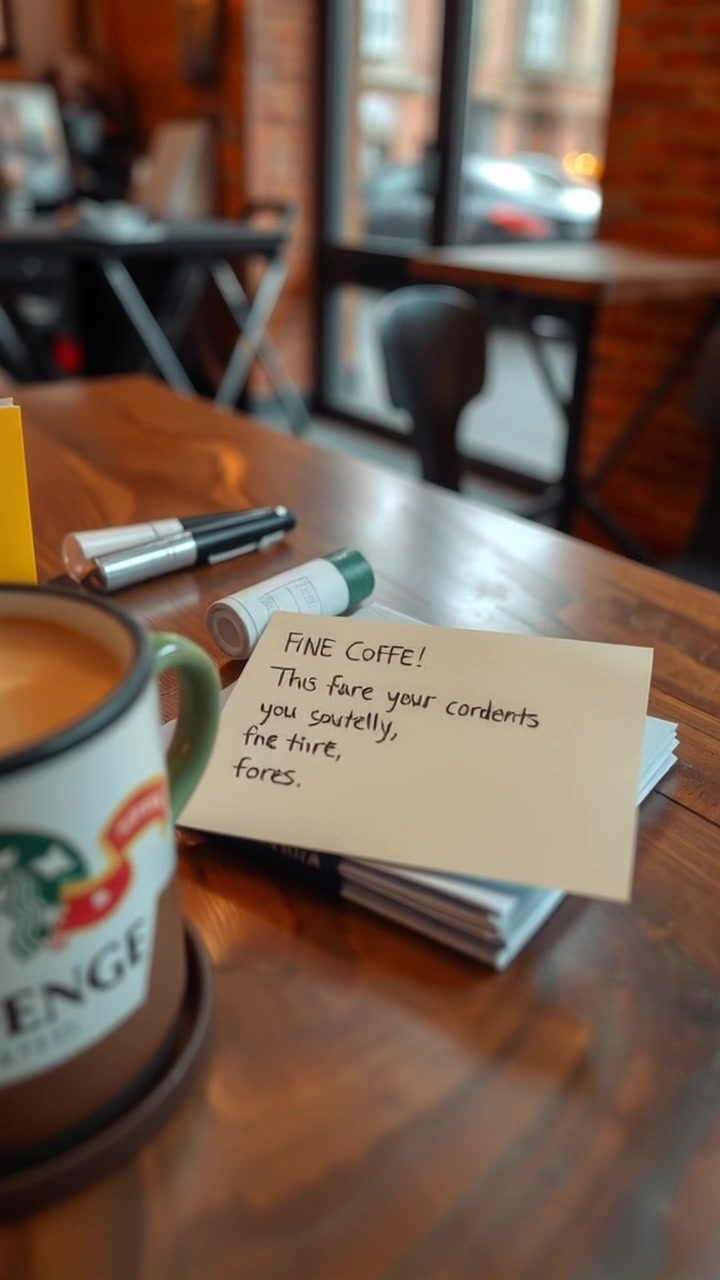 FINE COFFE!
This fare your cordents
you soutelly,
fne tire,
fores.
ENGE